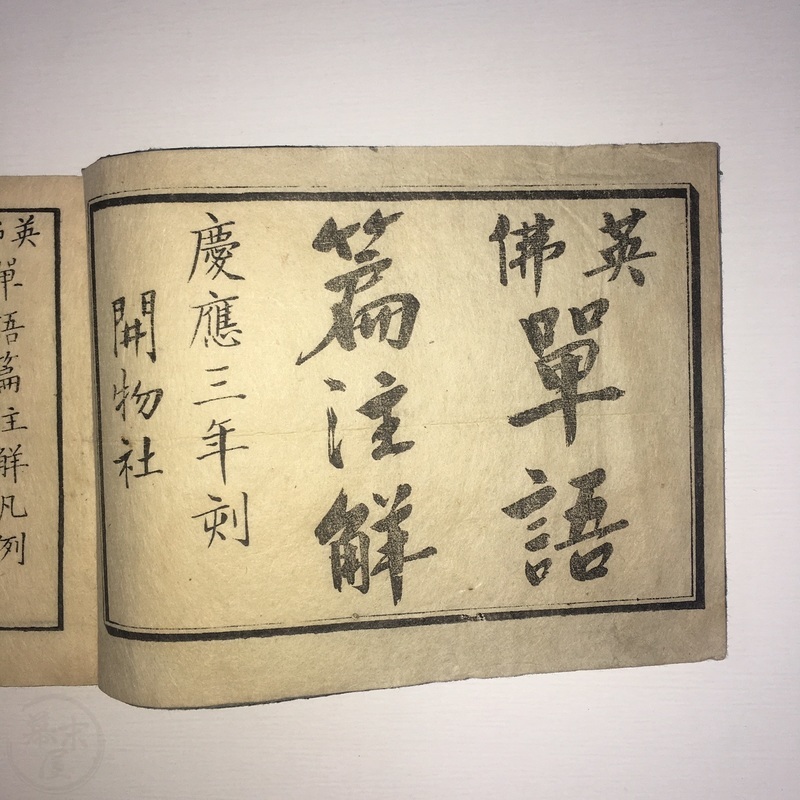 英佛
單語
篇注解
慶應三年刻
開物社
英佛單語篇主解凡例
幕末屋